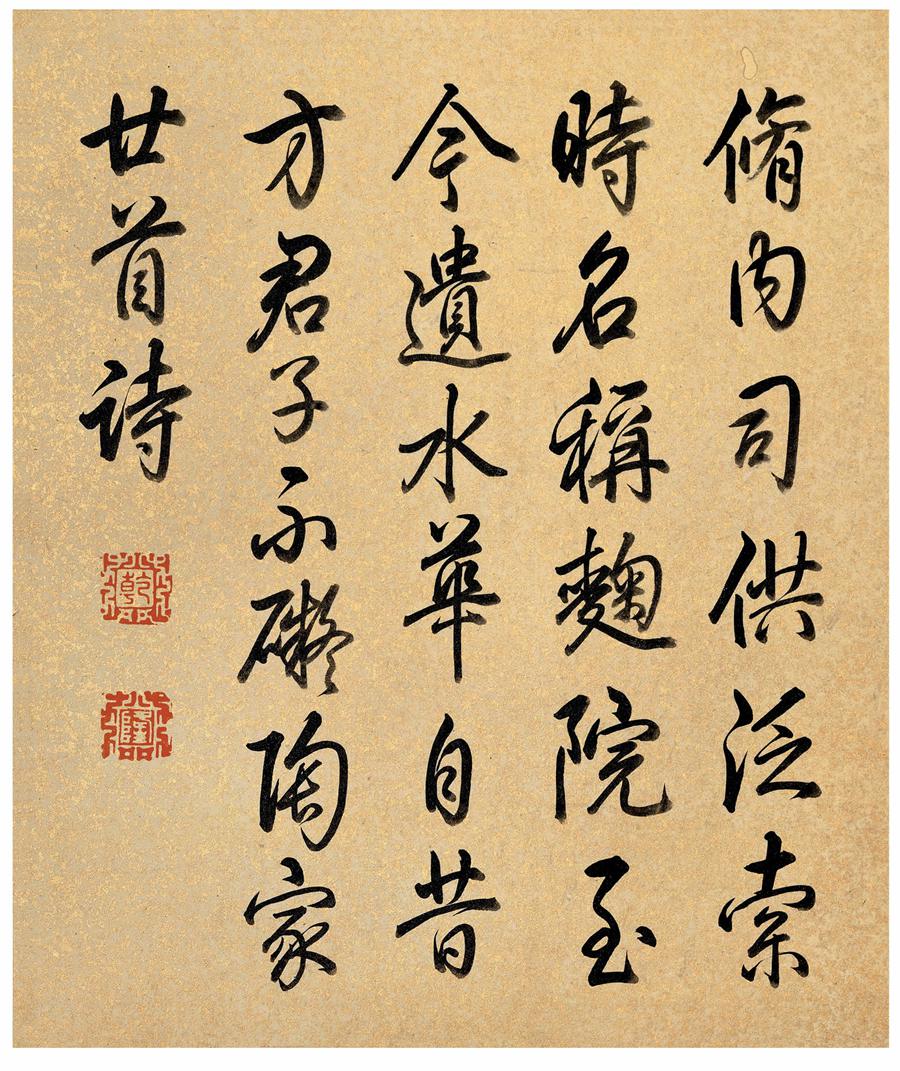 脩内司供泛索
時名稱麴院至
今遺水華自昔
方君子不礙陶家
廿首詩
乾
隆